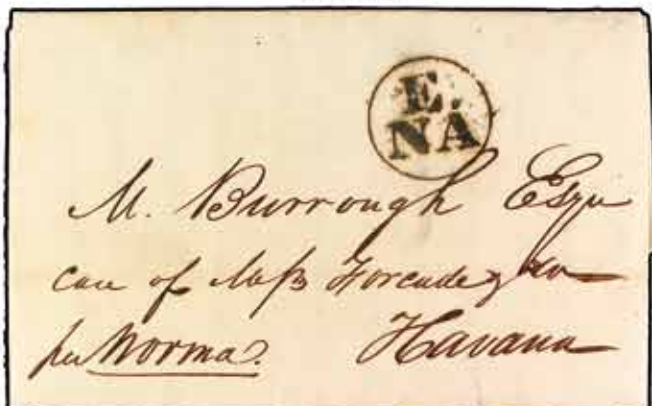 E.
NA
M. Burrough Esqr
care of Mess Forcade & Co
per Norma. Havana